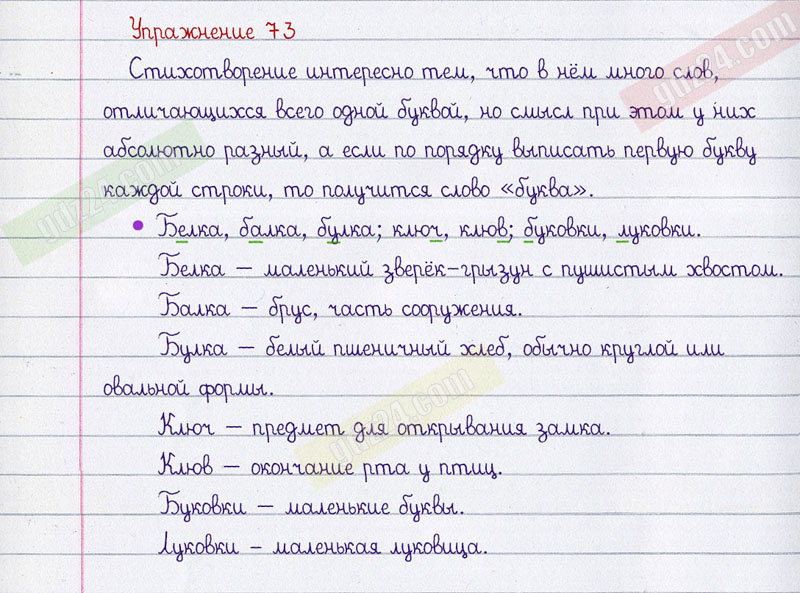 Упражнение 73
Стихотворение интересно тем, что в нём много слов,
отличающихся всего одной буквой, но смысл при этом у них
абсолютно разный, а если по порядку выписать первую букву
каждой строки, то получится слово «буква».
• Белка, балка, булка; ключ, клюв; буковки, луковки.
Белка – маленький зверёк-грызун с пушистым хвостом.
Балка – брус, часть сооружения.
Булка – белый пшеничный хлеб, обычно круглой или
овальной формы.
Ключ – предмет для открывания замка.
Клюв – окончание рта у птиц.
Буковки – маленькие буквы.
Луковки – маленькая луковица.
gdz24.com
gdz24.com
gdz24.com